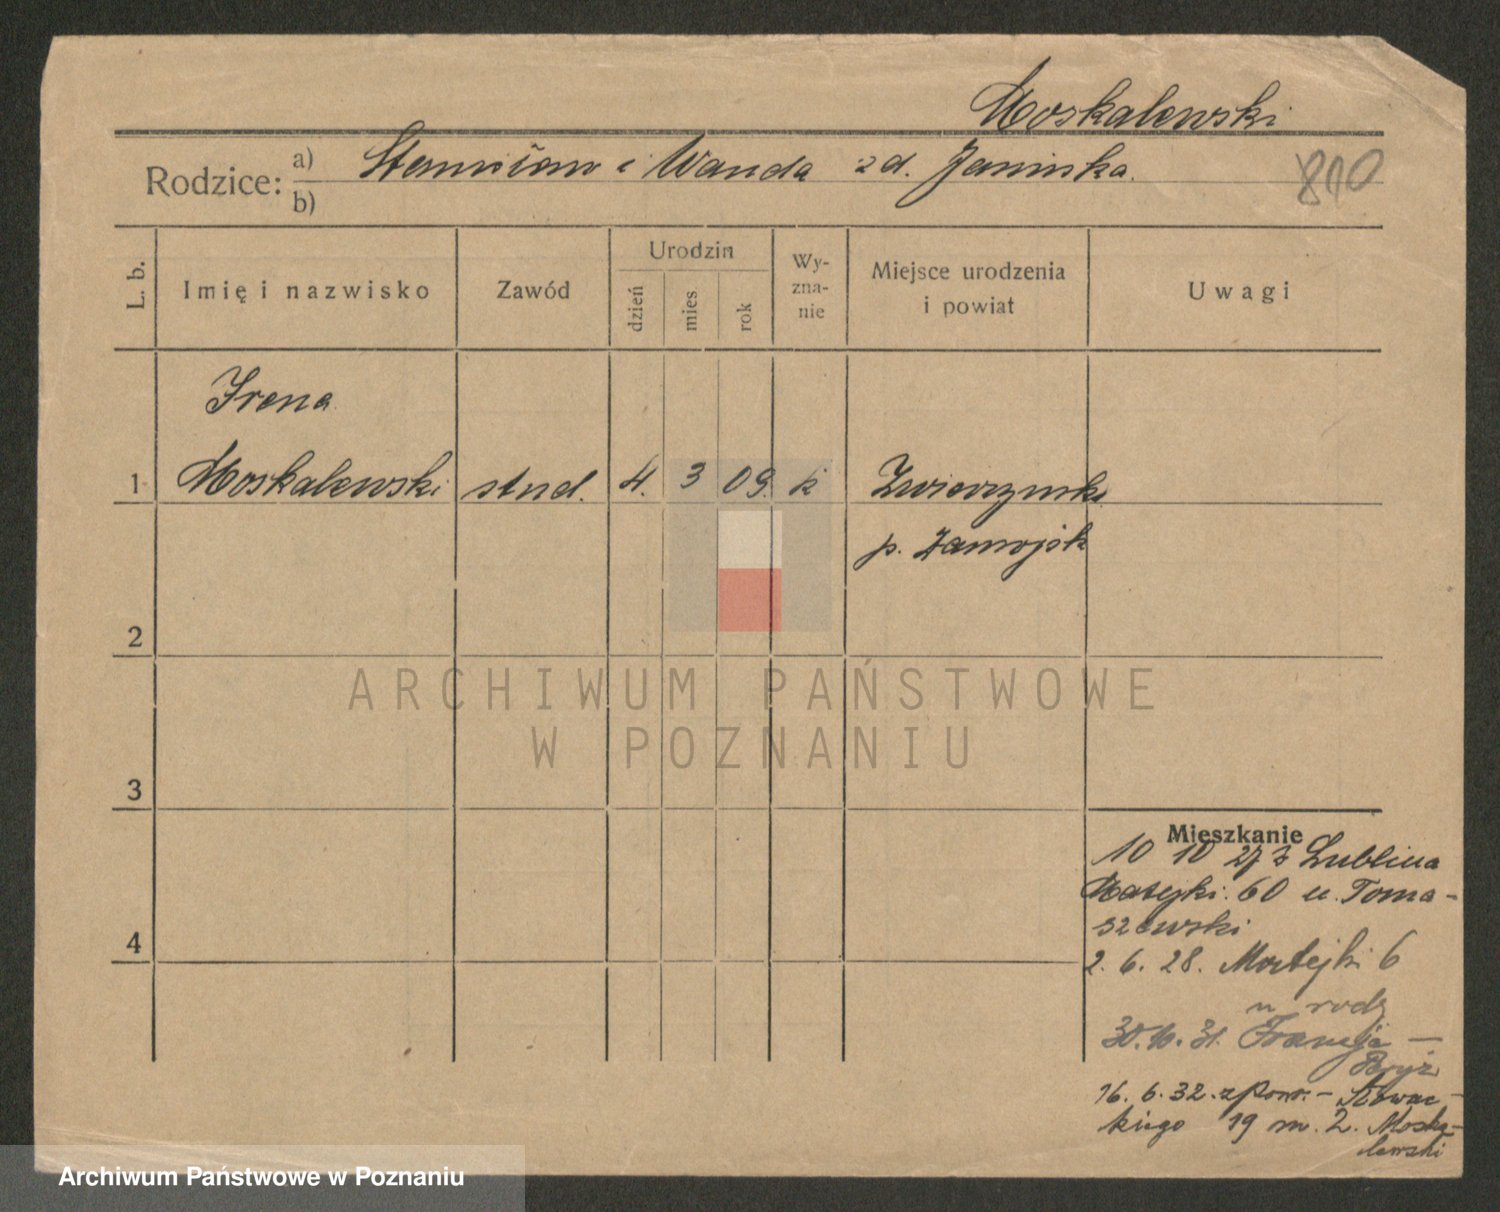 Moskalewski
Rodzice: a) Stanisław i Wanda zd. Janinska.
b)
810
L. b.
Imię i nazwisko
Zawód
Urodzin
dzień
mies
rok
Wy-
zna-
nie
Miejsce urodzenia
i powiat
Uwagi
Irena
1 Moskalewski stud. 4. 3 09. k Zwierzynki
p. Zamojsk
2
3
4
ARCHIWUM PAŃSTWOWE
W POZNANIU
Mieszkanie
10 10 27 z Lublina
Matejki. 60 u. Toma-
szewski
2. 6. 28. Matejki 6
u rodz
30. 10. 31. Francja –
Paryż
16. 6. 32. z pow. – Słowac-
kiego 19 m. 2. Moska-
lewski
Archiwum Państwowe w Poznaniu